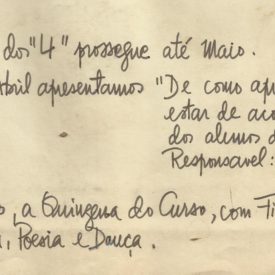 dos "4" prossegue até Maio.
Abril apresentamos "De como apr
estar de aco
dos alunos d
Responsavel:
, a Quinzena do Curso, com Fi
, Poesia e Dança.